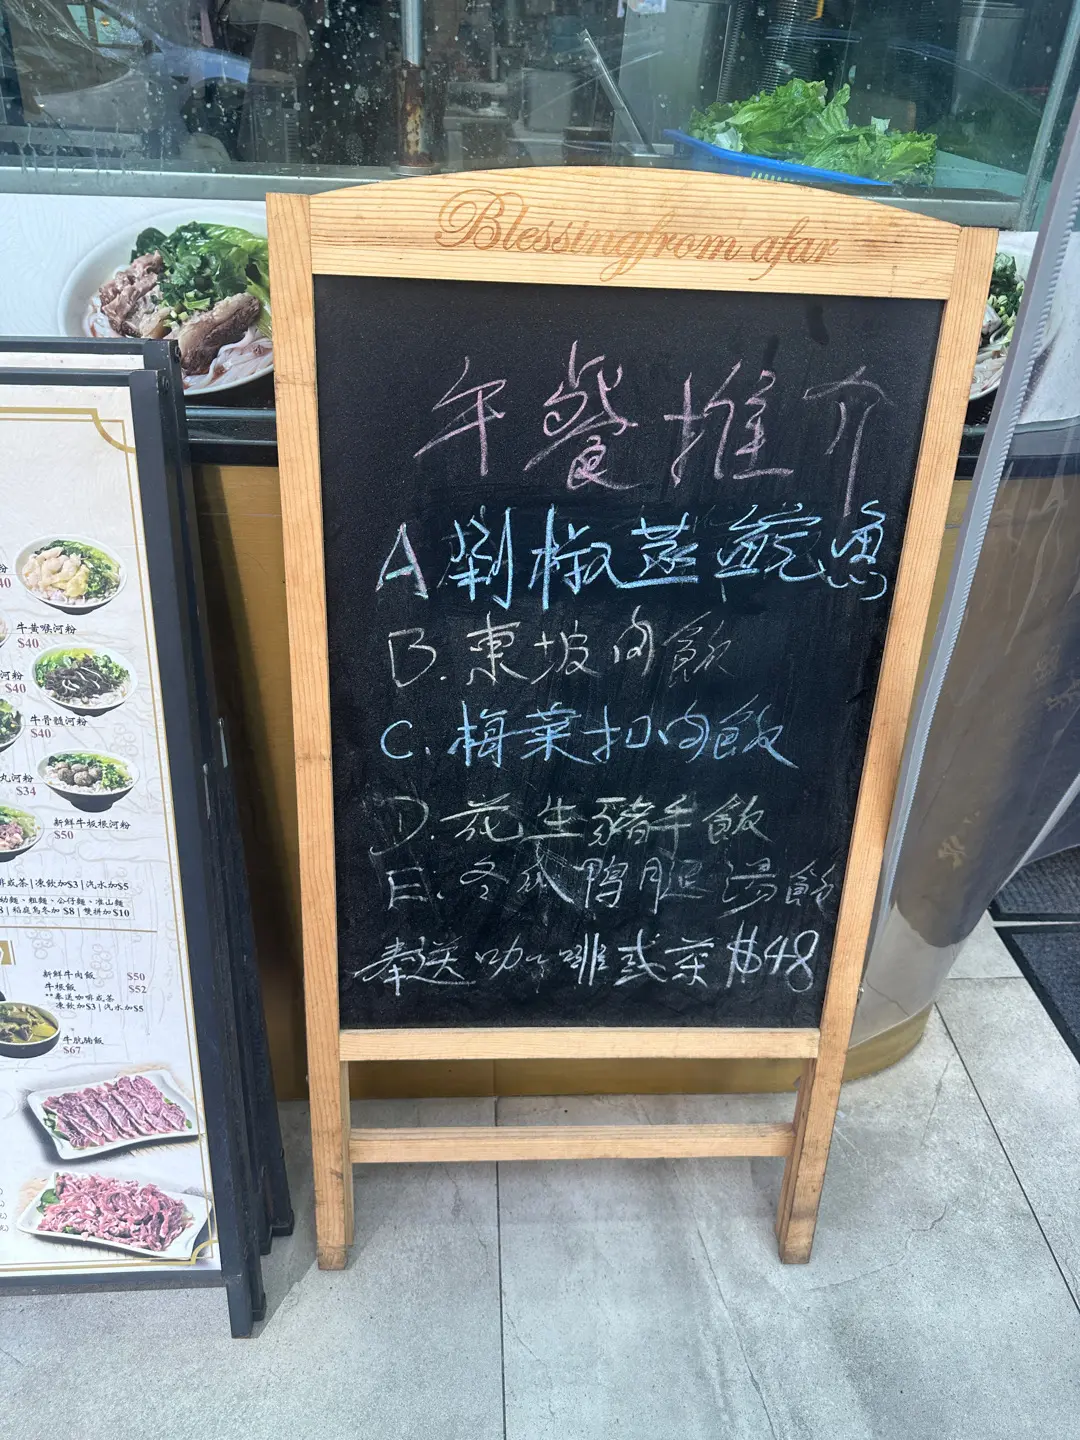 Blessingfrom afar
午餐推介
A剁椒蒸鯇魚
B.東坡肉飯
C.梅菜扣肉飯
D.花生豬手飯
E.冬瓜鴨腿湯飯
奉送咖啡或茶$48
粉
40
牛黃喉河粉
$40
河粉
$40
牛骨髓河粉
$40
丸河粉
$34
新鮮牛板根河粉
$50
啡或茶|凍飲加$3|汽水加$5
幼麵、粗麵、公仔麵、淮山麵
8|稻庭烏冬加 $8|雙拼加$10
新鮮牛肉飯 $50
牛根飯 $52
**奉送咖啡或茶
凍飲加$3|汽水加$5
牛肮腩飯
$67